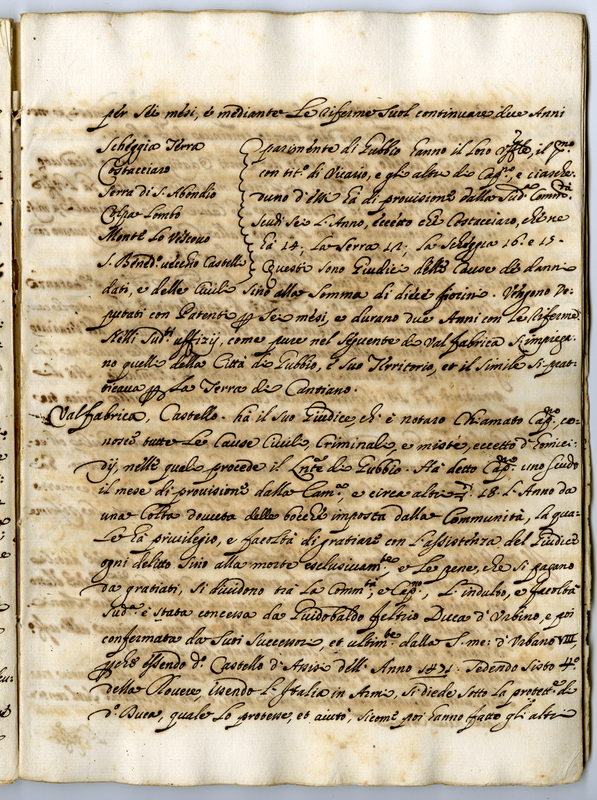 per sei mesi, è mediante Le Riferme Suol continuare due Anni
Scheggia Terra
Costacciaro
Serra di S. Abondio
Colpa Lombo
Monte Lo Vescovo
S. Bened.º vecchio Castelli
parimente di Gubbio hanno il loro Uff.le, il P.mo
con tit.º di Vicario, e gli altri di Cap.º, e ciasche
duno d'essi hà di provisione dalla Sud.ª Comm.tà
Scudi Sei L'Anno, eccetto chè Costacciaro, chè ne
hà 14, La Serra 12, la Scheggia 16. e 15.
Questi sono Giudici delle Cause de danni
dati, e delle Civili Sino alla Somma di dieci fiorini. Vengono De=
putati con Patenti per Sei mesi, e durano due Anni con Le Riferme.
Nelli Sud.ti uffizij, come pure nel Seguente di Valfabrica S'impiega=
no quelli della Città di Gubbio, e Suo Territorio, et il Simile Si prat=
ticava per La Terra di Cantiano.
Valfabrica, Castello. hà il Suo Giudice, ch' è notaro Chiamato Cap.no, co=
nosce tutte Le Cause Civili, Criminali, e miste, eccetto d'homici=
dij, nelli quali procede il L.nte di Gubbio. Hà detto Cap.no uno scudo
il mese di provisione dalla Cam.ª, e circa altri 18. L'Anno da
una Colta devuta delle bocche imposta dalla Communità, la qua=
Le hà privilegio, e facoltà di gratiare con L'assistenza del Giudice
ogni delitto Sino alla morte esclusivam.te, e Le pene, che Si pagano
da gratiati, Si dividono trà La Comm.tà, e Cap.no, L'indulto, e facoltà
Sud.ª è Stata concessa da Guidobaldo Feltrio Duca d'Urbino, e poi
confermata da Suoi Successori, et ultim.te dalla S. me: d'Urbano VIII,
perche essendo d.º Castello d'Assisi dell'Anno 1471. Sedendo Sisto 4.º
della Rovere, essendo L'Italia in Armi, Si diede Sotto la protett.e di
d.º Duca, quale Lo protesse, et aiutò, Sicome poi hanno fatto gl'altri